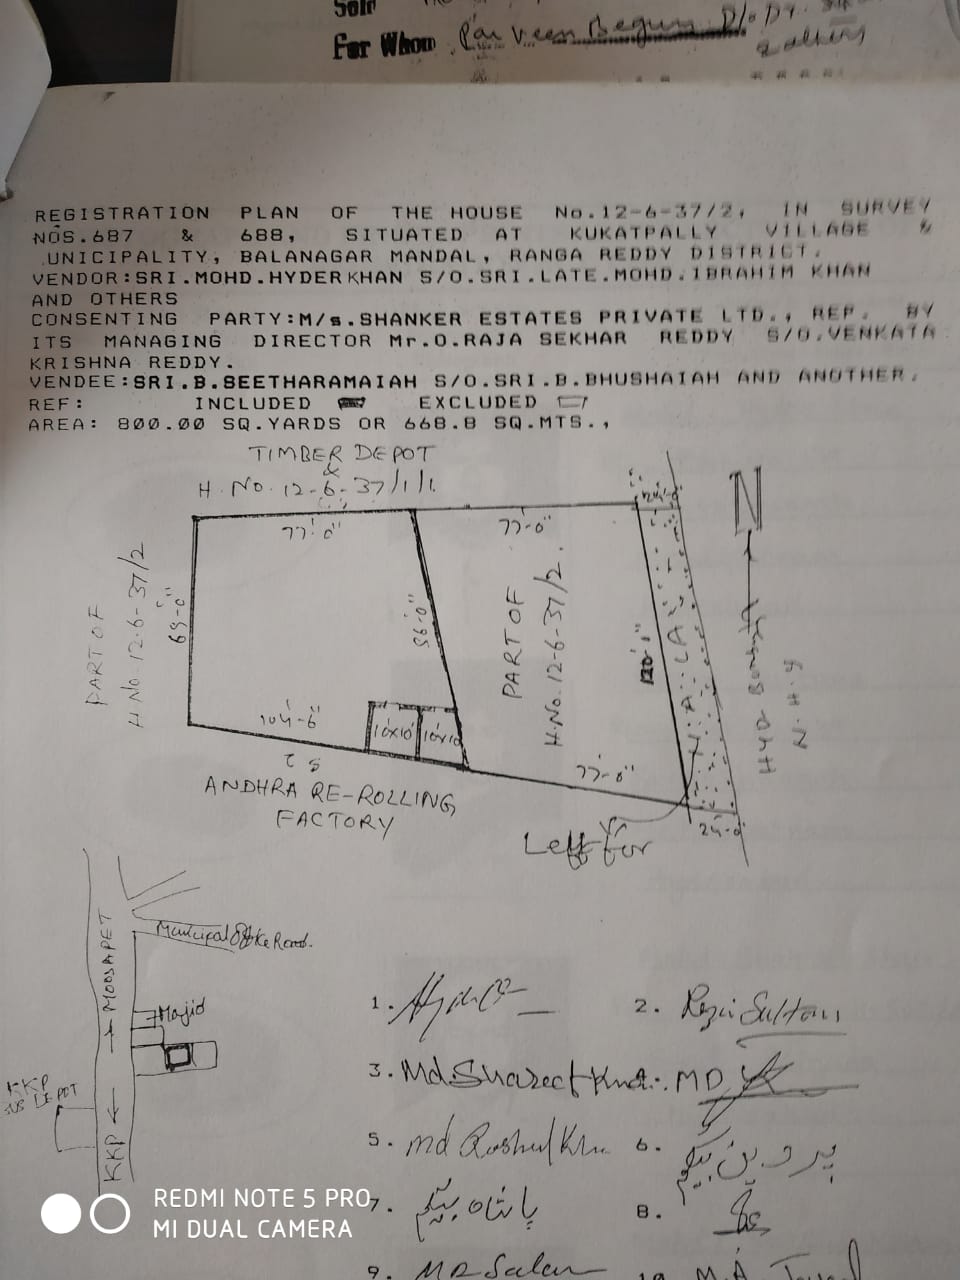 Sold
For Whom Parveen Begum D/o Dr.
REGISTRATION PLAN OF THE HOUSE No.12-6-37/2, IN SURVEY
NOS.687 & 688, SITUATED AT KUKATPALLY VILLAGE &
.UNICIPALITY, BALANAGAR MANDAL, RANGA REDDY DISTRICT.
VENDOR:SRI.MOHD.HYDER KHAN S/O.SRI.LATE.MOHD.IBRAHIM KHAN
AND OTHERS
CONSENTING PARTY:M/s.SHANKER ESTATES PRIVATE LTD., REP. BY
ITS MANAGING DIRECTOR Mr.O.RAJA SEKHAR REDDY S/O.VENKATA
KRISHNA REDDY.
VENDEE:SRI.B.SEETHARAMAIAH S/O.SRI.B.BHUSHAIAH AND ANOTHER.
REF: INCLUDED EXCLUDED
AREA: 800.00 SQ.YARDS OR 668.8 SQ.MTS.,
TIMBER DEPOT
&
H. No. 12-6-37/1/1.
77'-0"
77'-0"
24-0
N
PART OF
H No. 12-6-37/2
69-0"
96-0"
PART OF
H.No. 12-6-37/2.
120'-1"
NALA
HYD-BOMBAY
N.H.9
104'-6"
10x10
10x10
77-0"
24-0
ANDHRA RE-ROLLING
FACTORY
Left for
MOOSAPET
Municipal Office Road.
Majid
KKP
SUB DEPOT
KKP
1.
2. Razia Sultana
3. Md. Shareef Khan. MD
5. md Rashed Khan
6. پروین بیگم
7. پاشاہ بیگم
8.
9. MD Salam
10 M.A
REDMI NOTE 5 PRO
MI DUAL CAMERA